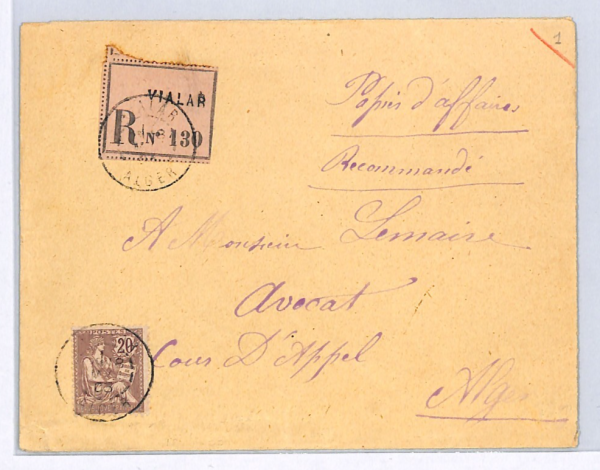 1
VIALAR
R. N° 130
VIALAR
ALGER
Papiers d'affaires
Recommandé
A Monsieur Lemaire
Avocat
Cour D'Appel
Alger
POSTES
20